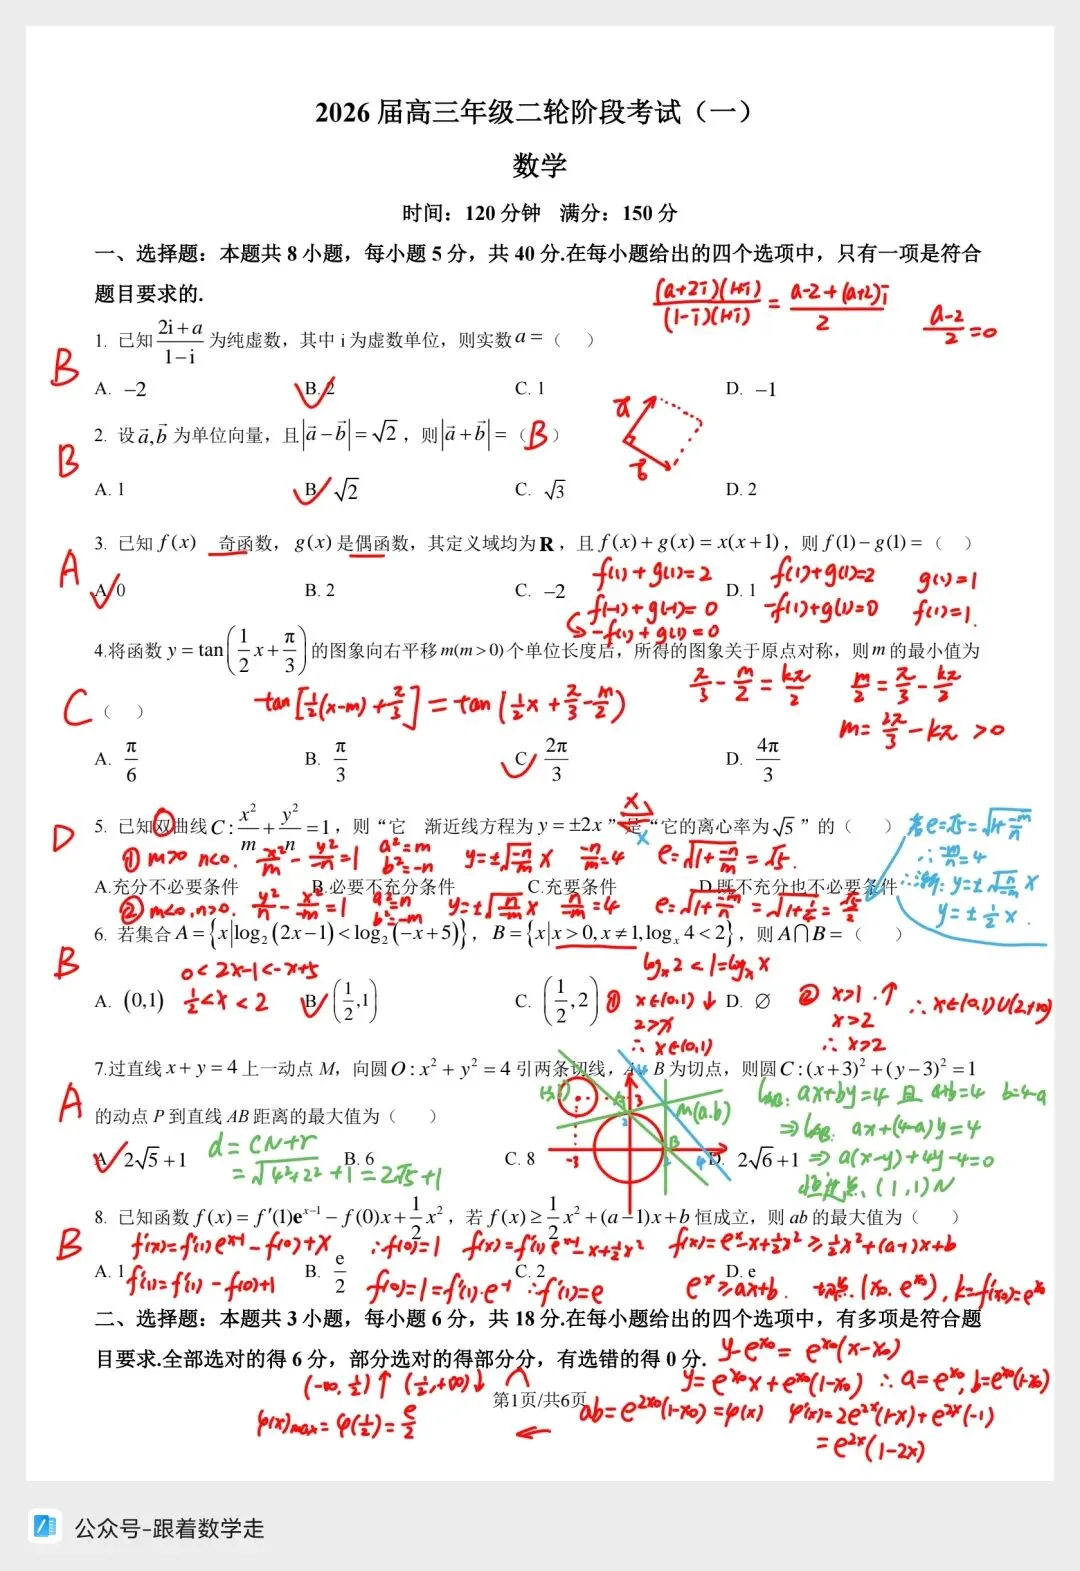 2026 届高三年级二轮阶段考试（一）
数学
时间：120 分钟　满分：150 分
一、选择题：本题共 8 小题，每小题 5 分，共 40 分.在每小题给出的四个选项中，只有一项是符合
题目要求的.
(a+2i)(1+i)/(1-i)(1+i) = a-2+(a+2)i/2
a-2/2=0
B
1. 已知 2i+a/1−i 为纯虚数，其中 i 为虚数单位，则实数 a =（　）
A. −2　B. 2　C. 1　D. −1
B
2. 设 a⃗,b⃗ 为单位向量，且 |a⃗−b⃗| = √2，则 |a⃗+b⃗| =（B）
A. 1　B. √2　C. √3　D. 2
A
3. 已知 f(x) 奇函数，g(x) 是偶函数，其定义域均为 R，且 f(x)+g(x)=x(x+1)，则 f(1)−g(1)=（　）
A. 0　B. 2　C. −2　D. 1
f(1)+g(1)=2　f(1)+g(1)=2　g(1)=1
f(-1)+g(-1)=0　-f(1)+g(1)=0　f(1)=1.
-f(1)+g(1)=0
4.将函数 y=tan(1/2 x+π/3) 的图象向右平移 m(m>0) 个单位长度后，所得的图象关于原点对称，则 m 的最小值为
C
（　）
tan[½(x-m)+π/3]=tan(½x+π/3-m/2)
π/3-m/2=kπ/2　m/2=π/3-kπ/2
m=2π/3-kπ>0
A. π/6　B. π/3　C. 2π/3　D. 4π/3
D
5. 已知双曲线 C: x²/m+y²/n=1，则“它　渐近线方程为 y=±2x”是“它的离心率为√5”的（　）
①m>0 n<0. x²/m-y²/-n=1 a²=m b²=-n y=±√(-n/m) x -n/m=4 e=√(1+-n/m)=√5.
A.充分不必要条件　B.必要不充分条件　C.充要条件　D.既不充分也不必要条件
②m<0,n>0. y²/n-x²/-m=1 a²=n b²=-m y=±√(n/-m) x n/-m=4 e=√(1+-m/n)=√(1+¼)=√5/2
若e=√5=√(1+-m/n)
∴-m/n=4
∴渐: y=±√(n/-m) x
y=±½x.
6. 若集合 A={x|log₂(2x−1)<log₂(−x+5)}，B={x|x>0,x≠1,logₓ4<2}，则 A∩B=（　）
B
0<2x-1<-x+5
½<x<2
logₓ2<1=logₓx
A. (0,1)　B. (1/2,1)　C. (1/2,2)　D. ∅
①x∈(0,1)↓
2>x
∴x∈(0,1)
②x>1.↑
x>2
∴x>2
∴x∈(0,1)∪(2,+∞)
7.过直线 x+y=4 上一动点 M，向圆 O:x²+y²=4 引两条切线，A、B 为切点，则圆 C:(x+3)²+(y−3)²=1
A
的动点 P 到直线 AB 距离的最大值为（　）
M(a,b)
l_AB: ax+by=4 且 a+b=4 b=4-a
⇒l_AB: ax+(4-a)y=4
⇒a(x-y)+4y-4=0
恒过点(1,1)N
d=CN+r
=√(4²+2²)+1=2√5+1
A. 2√5+1　B. 6　C. 8　D. 2√6+1
8. 已知函数 f(x)=f′(1)e^(x−1)−f(0)x+1/2 x²，若 f(x)≥1/2 x²+(a−1)x+b 恒成立，则 ab 的最大值为（　）
B
f'(x)=f'(1)e^(x-1)-f(0)+x ∴f(0)=1 f(x)=f'(1)e^(x-1)-x+½x² f(x)=e^x-x+½x²≥½x²+(a-1)x+b
A. 1　B. e/2　C. 2　D. e
f'(1)=f'(1)-f(0)+1 f(0)=1=f'(1)·e^-1 ∴f'(1)=e e^x≥ax+b. 切点.(x₀,e^x₀), k=f'(x₀)=e^x₀
二、选择题：本题共 3 小题，每小题 6 分，共 18 分.在每小题给出的四个选项中，有多项是符合题
目要求.全部选对的得 6 分，部分选对的得部分分，有选错的得 0 分.
y-e^x₀=e^x₀(x-x₀)
y=e^x₀x+e^x₀(1-x₀) ∴a=e^x₀, b=e^x₀(1-x₀)
ab=e^2x₀(1-x₀)=φ(x) φ'(x)=2e^2x(1-x)+e^2x(-1)
=e^2x(1-2x)
(-∞,½)↑ (½,+∞)↓
φ(x)max=φ(½)=e/2
第1页/共6页
公众号-跟着数学走